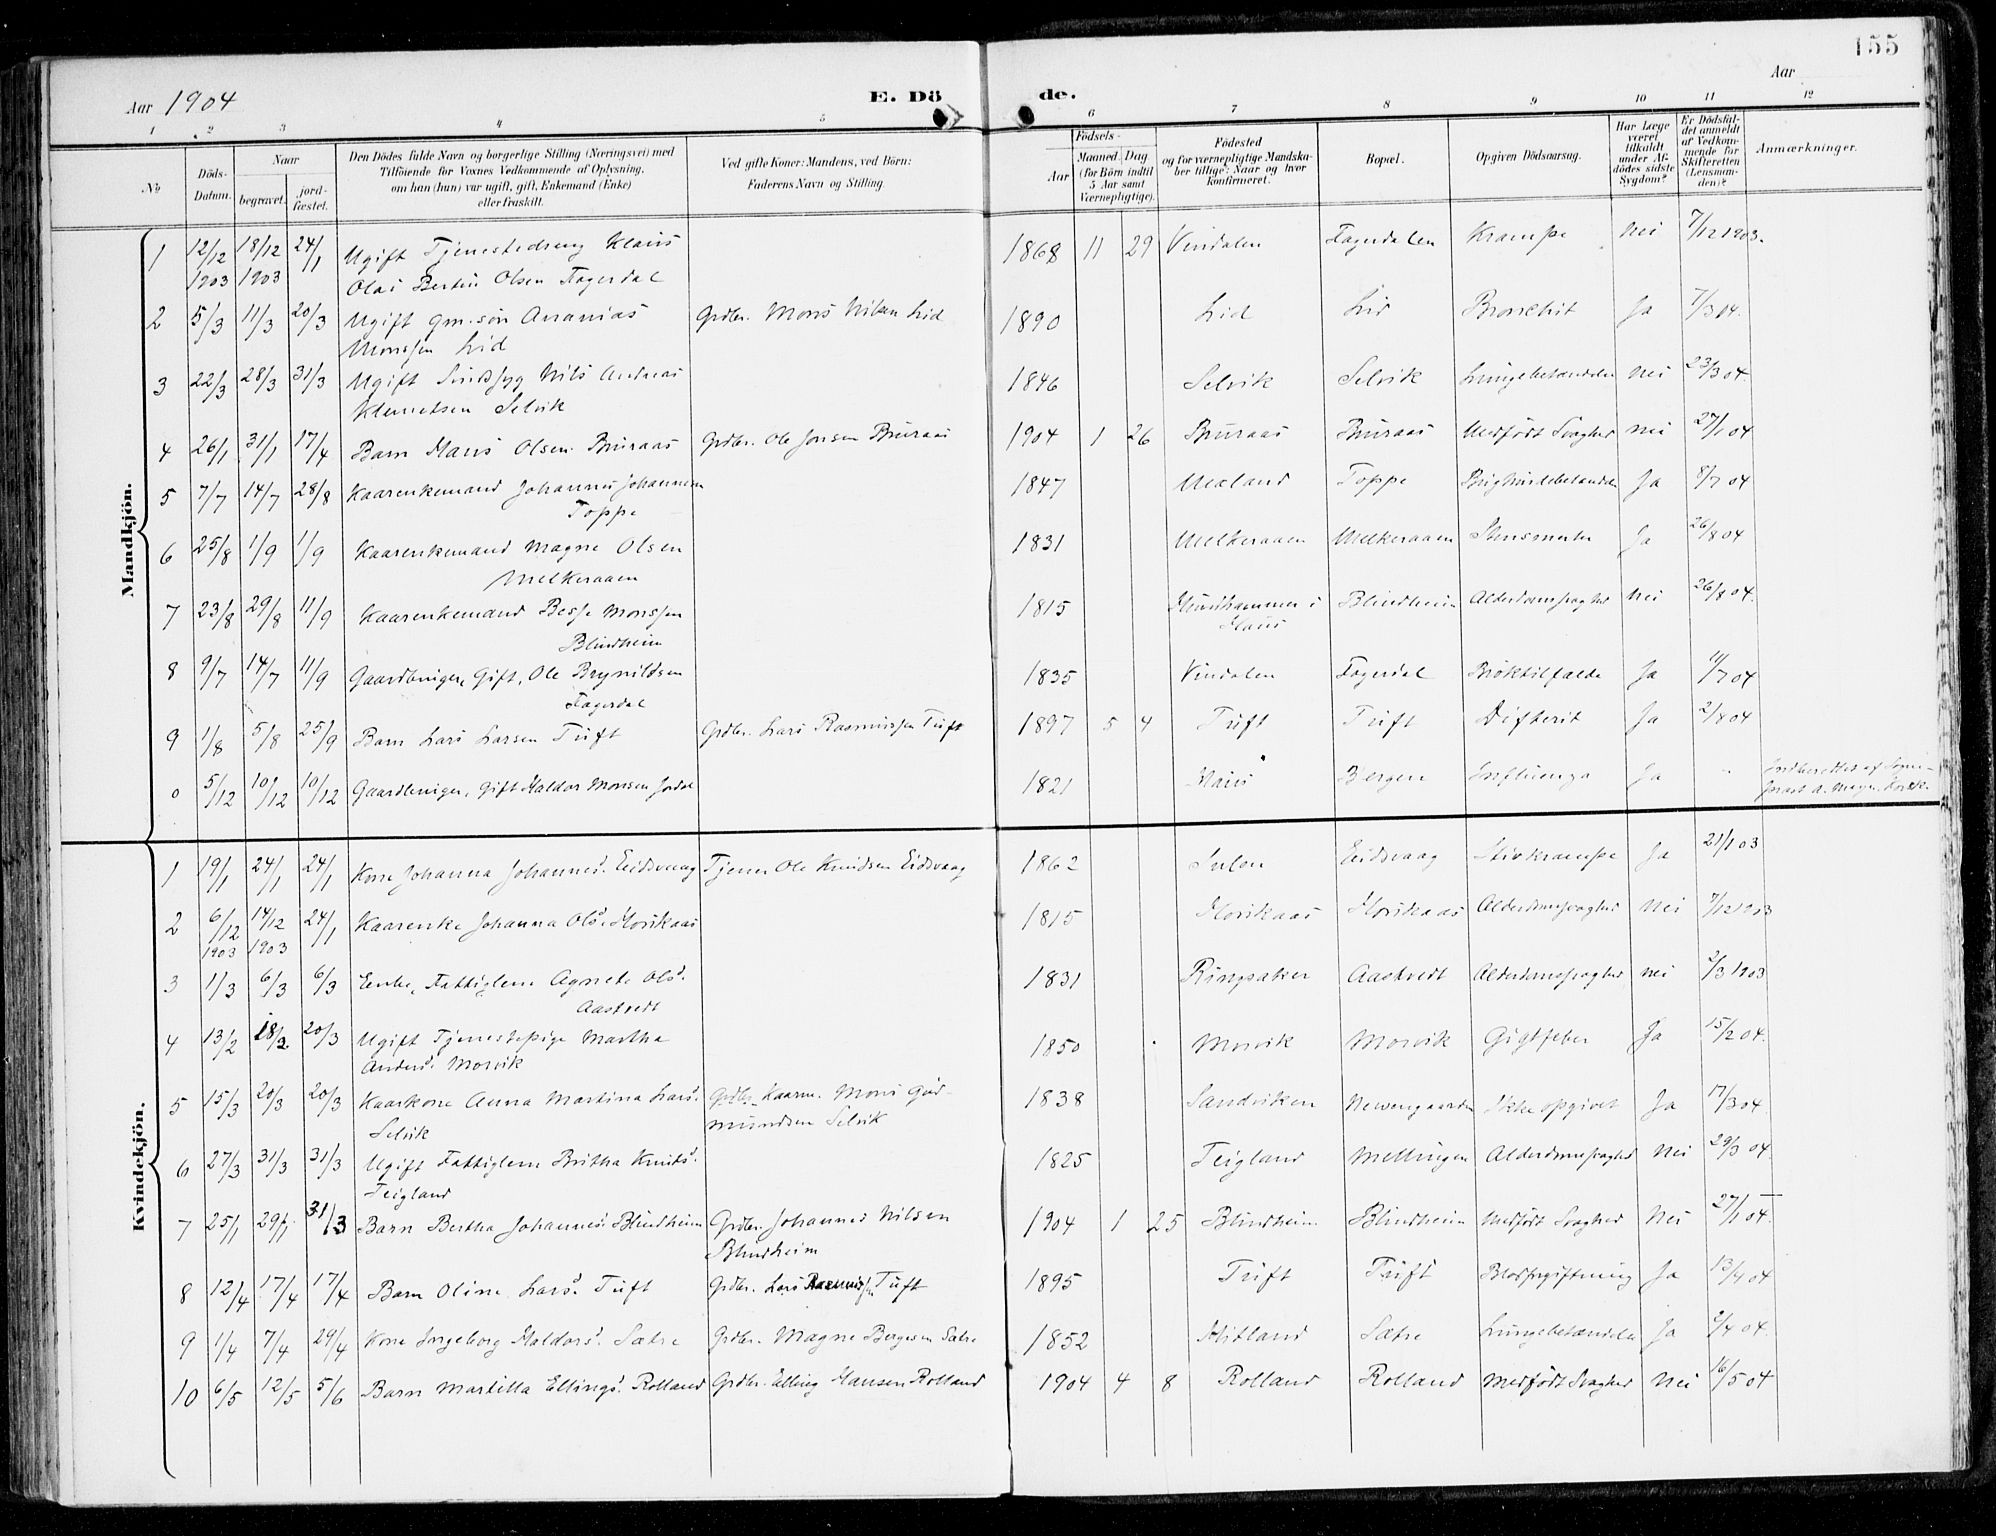 155
Aar 1904
E. Dö
de.
Aar
1 2 3 4 5 6 7 8 9 10 11 12
No
Döds-Datum.
Naar
begravet.
jord-fæstet.
Den Dödes fulde Navn og borgerlige Stilling (Næringsvei) med
Tilföiende for Voxnes Vedkommende af Oplysning,
om han (hun) var ugift, gift, Enkemand (Enke)
eller fraskilt.
Ved gifte Koner: Mandens, ved Börn:
Faderens Navn og Stilling.
Födsels-
Aar
Maaned Dag
(for Börn indtil
5 Aar samt
Værnepligtige).
Födested
og for værnepligtige Mandska-
ber tillige: Naar og hvor
konfirmeret.
Bopæl.
Opgiven Dödsaarsag.
Har Læge
været
tilkaldt
under Af-
dödes sidste
Sygdom?
Er Dödsfal-
det anmeldt
af Vedkom-
mende for
Skifteretten
(Lensman-
den)?
Anmærkninger.
Mandkjön.
1 12/12 1903 18/12 1903 24/1 Ugift Tjenestedreng Klaus 1868 11 29 Vindalen Fagerdalen Krampe Nei 7/12 1903.
Olai Bertin Olsen Fagerdal
2 5/3 11/3 20/3 Ugift Gm.søn Ananias Grdbr. Mons Nilsen Lid 1890 Lid Lid Bronchit Ja 7/3 04.
Monssen Lid
3 22/3 28/3 31/3 Ugift Sindssyg Nils Andreas 1846 Selvik Selvik Lungebetændelse Nei 23/3 04.
Klemetsen Selvik
4 26/1 31/1 17/4 Barn Hans Olsen Buraas Grdbr. Ole Jonsen Buraas 1904 1 26 Buraas Buraas Medfødt Svaghed Nei 27/1 04
5 7/7 14/7 28/8 Kaarenkemand Johannes Johannessen 1847 Mæland Toppe Brysthindebetændelse Ja 8/7 04
Toppe
6 25/8 1/9 1/9 Kaarenkemand Magne Olsen 1831 Melkeraaen Melkeraaen Stensmerter Ja 26/8 04
Melkeraaen
7 23/8 29/8 11/9 Kaarenkemand Besse Monssen 1815 Hundhammer i Haus Blindheim Alderdomssvaghed Nei 26/8 04.
Blindheim
8 9/7 14/7 11/9 Gaardbruger, Gift, Ole Brynildsen 1835 Vindalen Fagerdal Broktilfælde Ja 11/7 04
Fagerdal
9 1/8 5/8 25/9 Barn Lars Larsen Tuft Grdbr. Lars Rasmussen Tuft 1897 5 4 Tuft Tuft Difterit Ja 2/8 04
0 5/12 10/12 10/12 Gaardbruger, Gift Haldor Monsen Jordal 1821 Haus Bergen Influenza Ja " Indberettet af Sogne-
præst d. Mægn. Korsk.
Kvindekjön.
1 19/1 24/1 24/1 Kone Johanna Johannesd. Eidsvaag Tjener Ole Knudsen Eidsvaag 1862 Sulen Eidsvaag Stivkrampe Ja 21/1 03
2 6/12 1903 14/12 1903 24/1 Kaarenke Johanna Olsd. Horsikaas 1815 Horsikaas Horsikaas Alderdomssvaghed Nei 7/12 1903
3 1/3 6/3 6/3 Enke, Fattiglem Agnete Olsd. 1831 Ringsaker Aastvedt Alderdomssvaghed Nei 2/3 1903
Aastvedt
4 13/2 18/2 20/3 Ugift Tjenestepige Martha 1850 Morvik Morvik Gigtfeber Ja 15/2 04.
Andersd. Morvik
5 15/3 20/3 20/3 Kaarkone Anna Martina Larsd. Grdbr. Kaarm. Mons Gud- 1838 Sandviken Nevengaarden Ikke opgivet Ja 17/3 04.
Selvik mundsen Selvik
6 27/3 31/3 31/3 Ugift Fattiglem Britha Knutsd. 1825 Teigland Mellingen Alderdomssvaghed Nei 29/3 04
Teigland
7 25/1 29/1 31/3 Barn Bertha Johannesd. Blindheim Grdbr. Johannes Nilsen 1904 1 25 Blindheim Blindheim Medfødt Svaghed Nei 27/1 04.
Blindheim
8 12/4 17/4 17/4 Barn Oline Larsd. Tuft Grdbr. Lars Rasmussen Tuft 1895 Tuft Tuft Blodforgiftning Ja 13/4 04
9 1/4 7/4 29/4 Kone Ingeborg Haldorsd. Sætre Grdbr. Magne Bergesen Sætre 1852 Hitland Sætre Lungebetændelse Ja 2/4 04.
10 6/5 12/5 5/6 Barn Martilla Ellingsd. Rolland Grdbr. Elling Hansen Rolland 1904 4 8 Rolland Rolland Medfødt Svaghed Nei 16/5 04